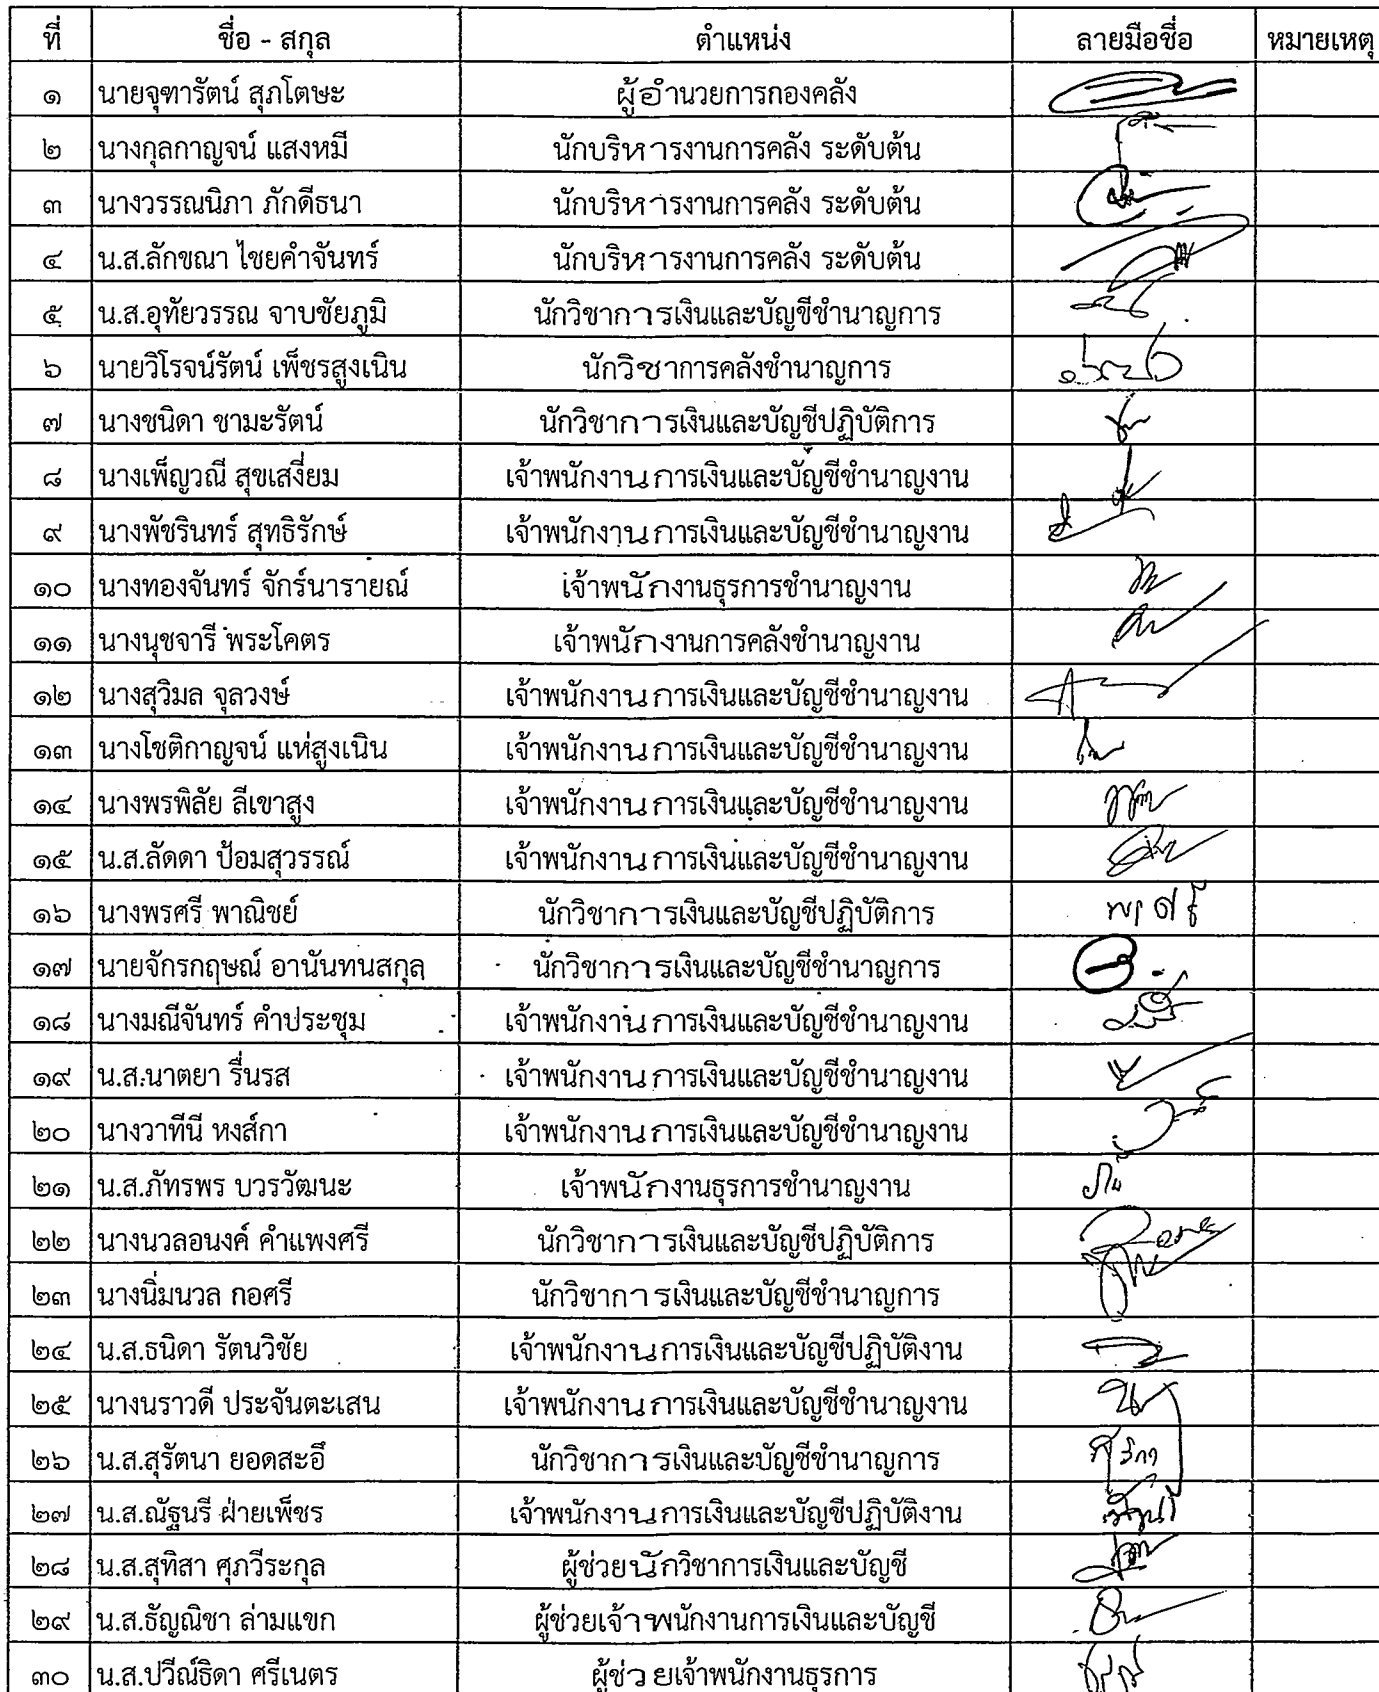 ที่ ชื่อ - สกุล ตำแหน่ง ลายมือชื่อ หมายเหตุ
๑ นายจุฑารัตน์ สุภโตษะ ผู้อำนวยการกองคลัง
๒ นางกุลกาญจน์ แสงหมี นักบริหารงานการคลัง ระดับต้น
๓ นางวรรณนิภา ภักดีธนา นักบริหารงานการคลัง ระดับต้น
๔ น.ส.ลักขณา ไชยคำจันทร์ นักบริหารงานการคลัง ระดับต้น
๕ น.ส.อุทัยวรรณ จาบชัยภูมิ นักวิชาการเงินและบัญชีชำนาญการ
๖ นายวิโรจน์รัตน์ เพ็ชรสูงเนิน นักวิชาการคลังชำนาญการ
๗ นางชนิดา ชามะรัตน์ นักวิชาการเงินและบัญชีปฏิบัติการ
๘ นางเพ็ญวณี สุขเสงี่ยม เจ้าพนักงานการเงินและบัญชีชำนาญงาน
๙ นางพัชรินทร์ สุทธิรักษ์ เจ้าพนักงานการเงินและบัญชีชำนาญงาน
๑๐ นางทองจันทร์ จักร์นารายณ์ เจ้าพนักงานธุรการชำนาญงาน
๑๑ นางนุชจารี พระโคตร เจ้าพนักงานการคลังชำนาญงาน
๑๒ นางสุวิมล จุลวงษ์ เจ้าพนักงานการเงินและบัญชีชำนาญงาน
๑๓ นางโชติกาญจน์ แห่สูงเนิน เจ้าพนักงานการเงินและบัญชีชำนาญงาน
๑๔ นางพรพิลัย ลีเขาสูง เจ้าพนักงานการเงินและบัญชีชำนาญงาน
๑๕ น.ส.ลัดดา ป้อมสุวรรณ์ เจ้าพนักงานการเงินและบัญชีชำนาญงาน
๑๖ นางพรศรี พาณิชย์ นักวิชาการเงินและบัญชีปฏิบัติการ พรศรี
๑๗ นายจักรกฤษณ์ อานันทนสกุล นักวิชาการเงินและบัญชีชำนาญการ
๑๘ นางมณีจันทร์ คำประชุม เจ้าพนักงานการเงินและบัญชีชำนาญงาน
๑๙ น.ส.นาตยา รื่นรส เจ้าพนักงานการเงินและบัญชีชำนาญงาน
๒๐ นางวาทีนี หงส์กา เจ้าพนักงานการเงินและบัญชีชำนาญงาน
๒๑ น.ส.ภัทรพร บวรวัฒนะ เจ้าพนักงานธุรการชำนาญงาน
๒๒ นางนวลอนงค์ คำแพงศรี นักวิชาการเงินและบัญชีปฏิบัติการ
๒๓ นางนิ่มนวล กอศรี นักวิชาการเงินและบัญชีชำนาญการ
๒๔ น.ส.ธนิดา รัตนวิชัย เจ้าพนักงานการเงินและบัญชีปฏิบัติงาน
๒๕ นางนราวดี ประจันตะเสน เจ้าพนักงานการเงินและบัญชีชำนาญงาน
๒๖ น.ส.สุรัตนา ยอดสะอึ นักวิชาการเงินและบัญชีชำนาญการ
๒๗ น.ส.ณัฐนรี ฝ่ายเพ็ชร เจ้าพนักงานการเงินและบัญชีปฏิบัติงาน
๒๘ น.ส.สุทิสา ศุภวีระกุล ผู้ช่วยนักวิชาการเงินและบัญชี
๒๙ น.ส.ธัญณิชา ล่ามแขก ผู้ช่วยเจ้าพนักงานการเงินและบัญชี
๓๐ น.ส.ปวีณ์ธิดา ศรีเนตร ผู้ช่วยเจ้าพนักงานธุรการ